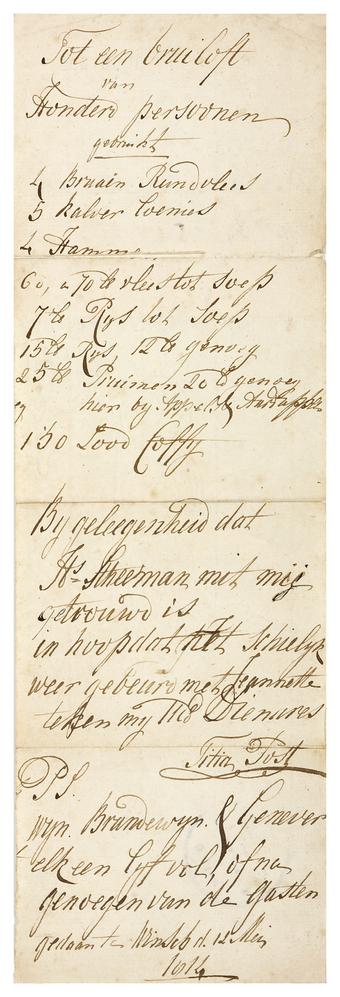 Tot een bruiloft
van
Honderd persoonen
gebruikt
4 Braaén Rundvlees
5 kalver Coenies
4 Hamme
60, a 70 lb vlees tot soep
7 lb Rys tot Soep
15 lb Rys, 12 lb genoeg
25 lb Pruimen 20 lb genoeg
hier by Appels & Aardappels
150 Lood Coffy
By geleegenheid dat
Hs Scheeman met mij
getrouwd is
in hoop dat het schielyk
weer gebeurd met Jannette
teken my UEd Dienares
Titia Post
PS.
wyn. Brandewyn. & Genever
elk een lyf vol, of na
genoegen van de gasten
gedaan te Winsch d. 12 Mei
1814